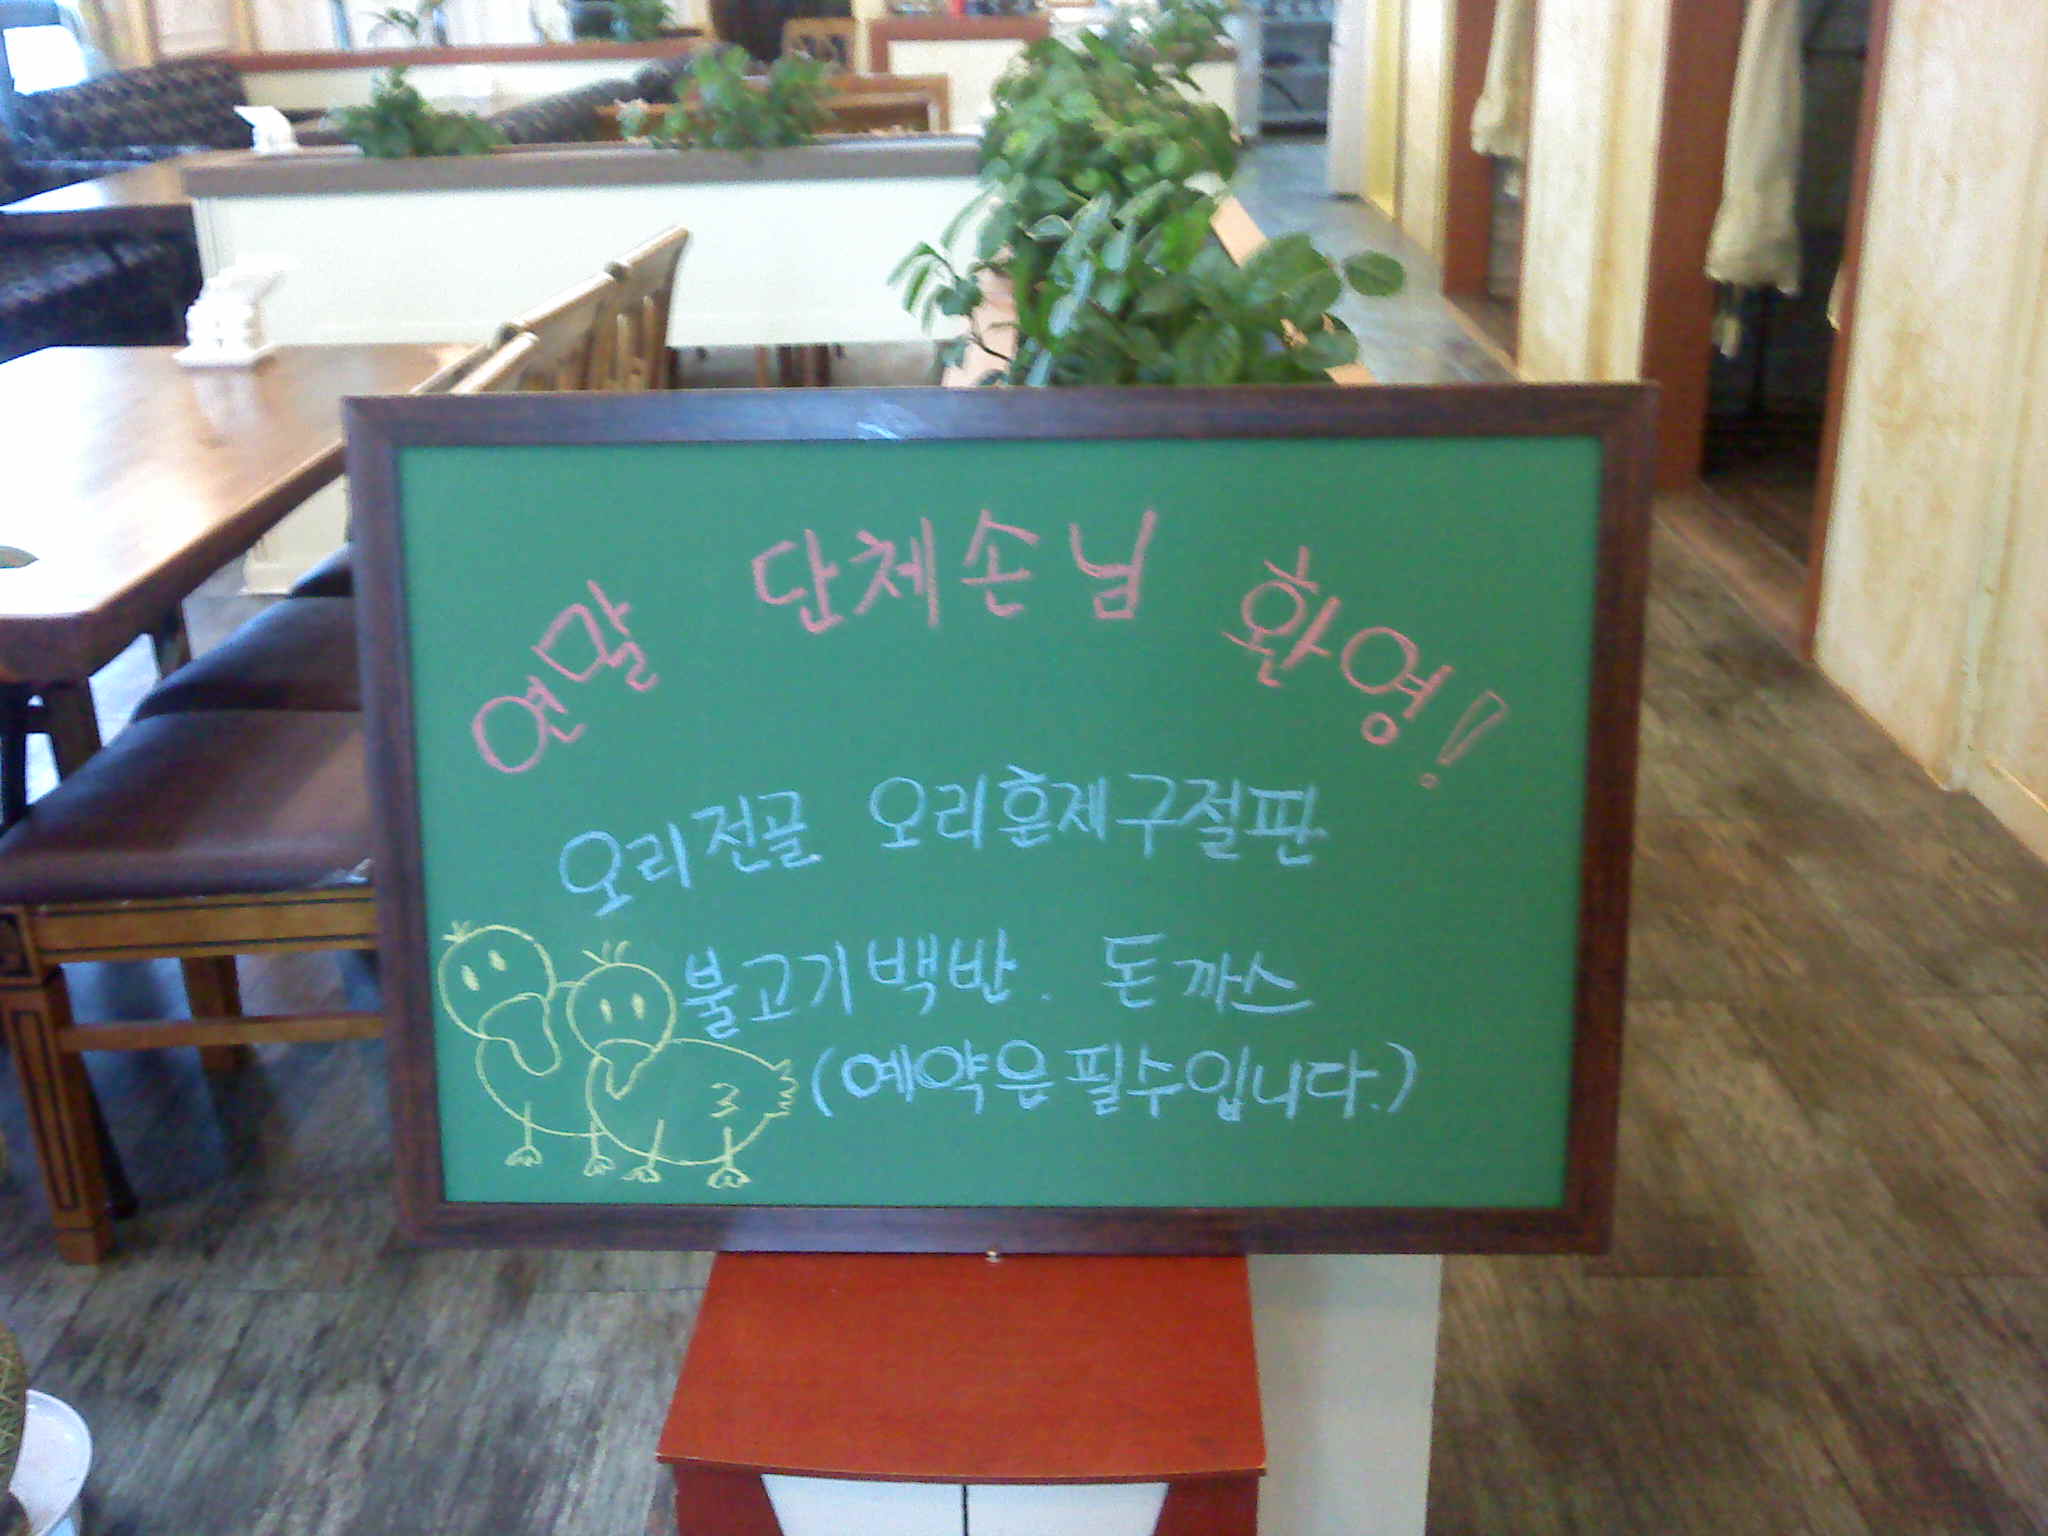 연말 단체손님 환영!
오리전골 오리훈제구절판
불고기백반. 돈까스
(예약은필수입니다.)